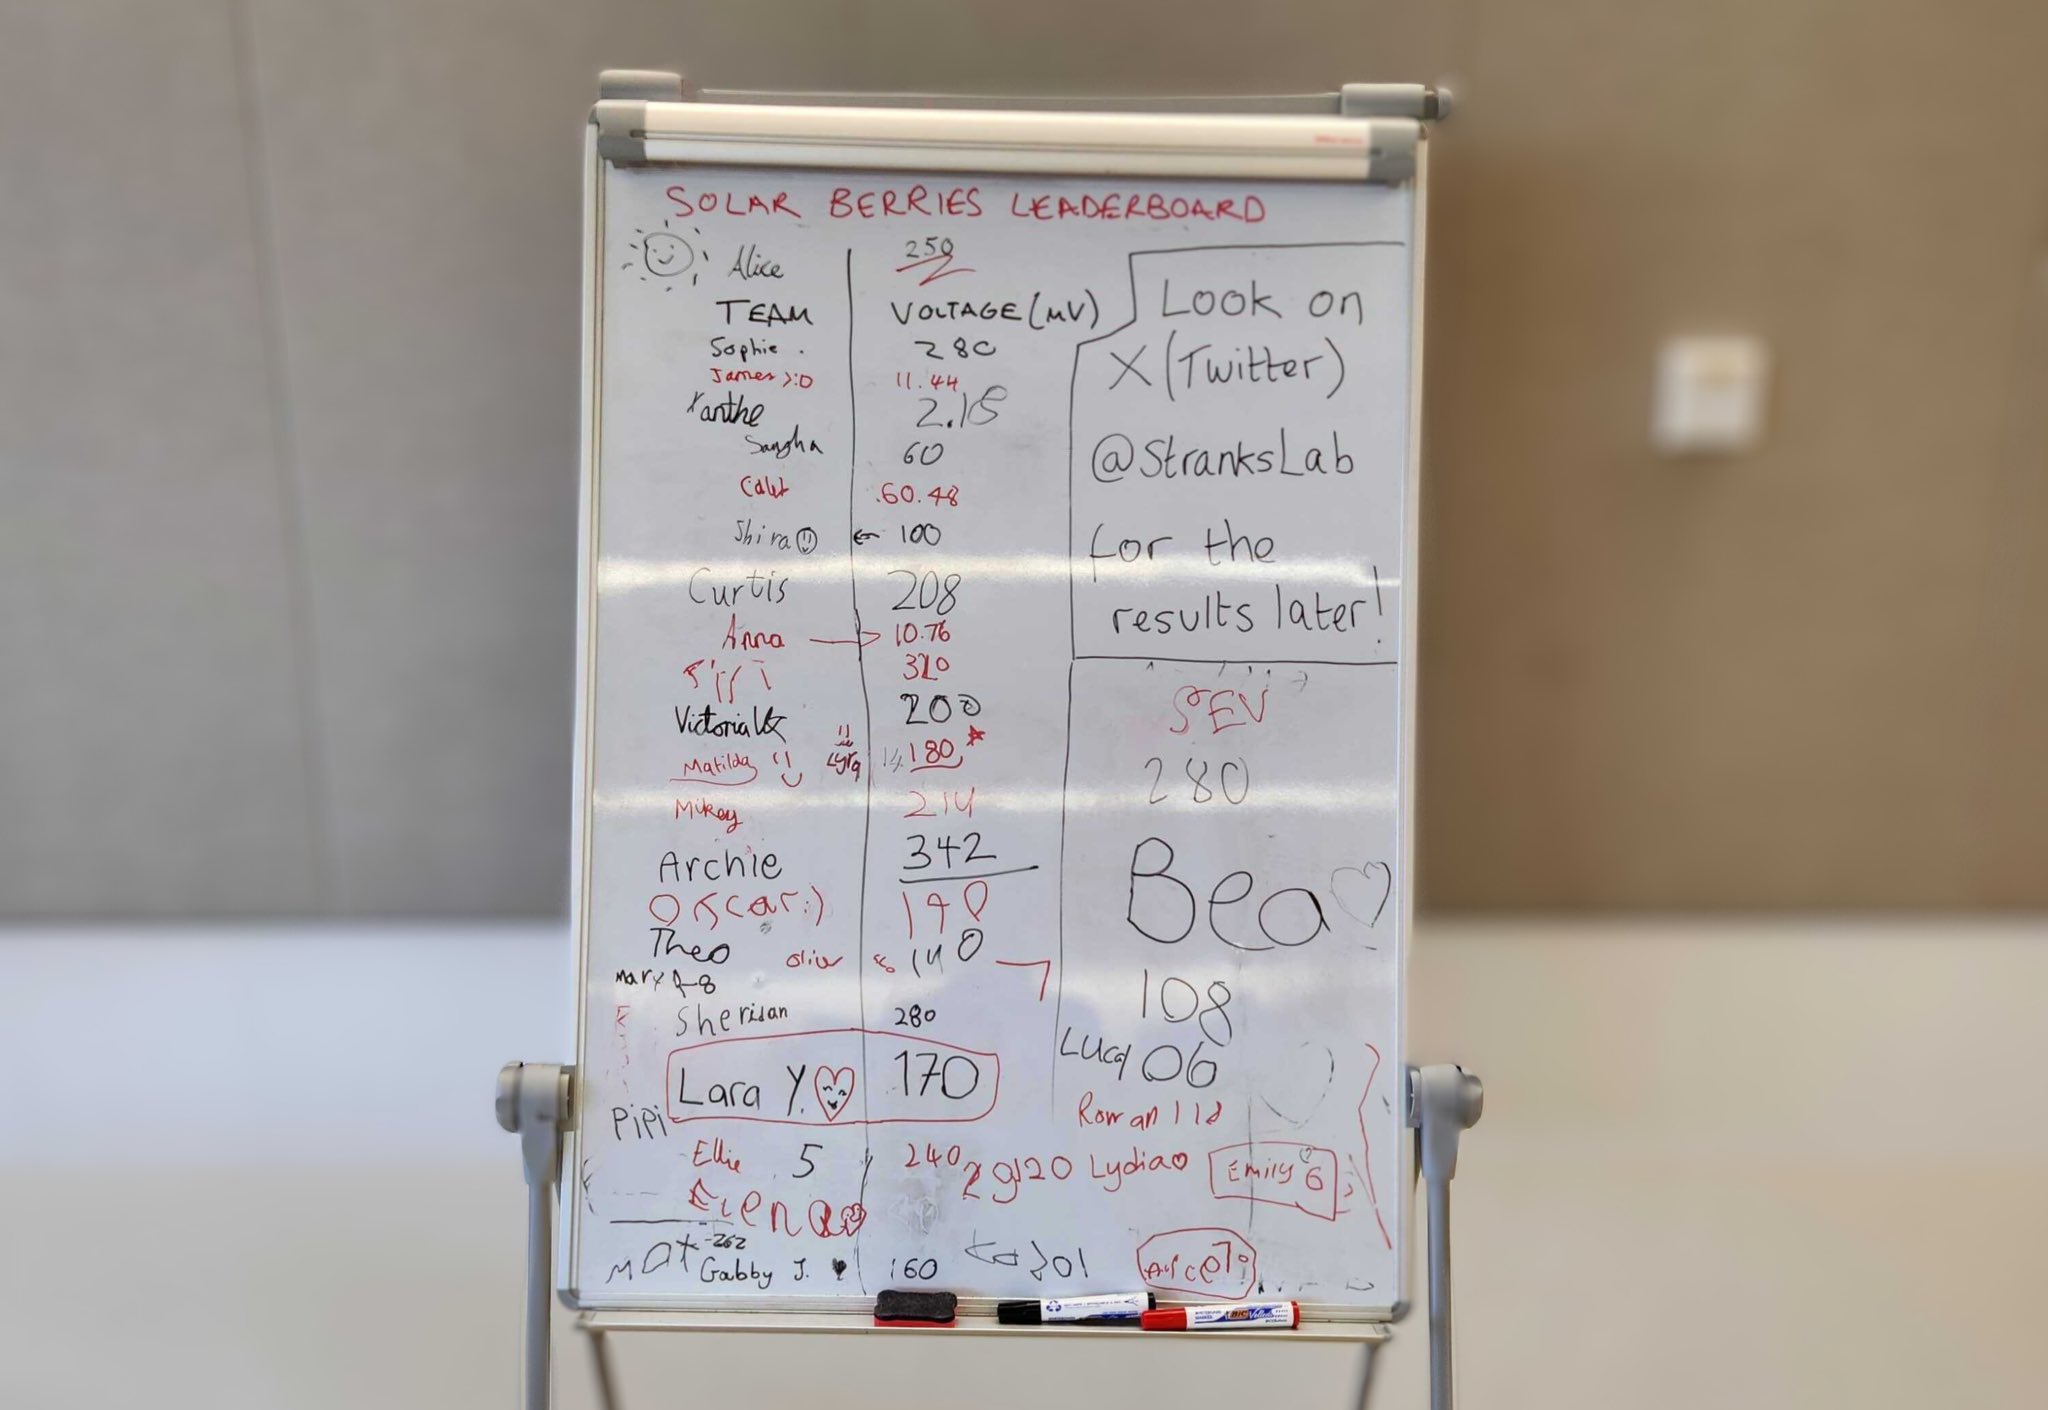 SOLAR BERRIES LEADERBOARD
Alice 250
TEAM VOLTAGE (MV)
Sophie . 280
James >:D 11.44
Xanthe 2.18
Sangha 60
60.48
Shira ← 100
Curtis 208
Anna → 10.76
320
Victoria 200
Matilda Lyra 180
Mikey 214
Archie 342
Oscar:) 190
Theo Oliver 140
Mark
Sheridan 280
Lara Y. 170
Pipi
Ellie 5 240
Elena
Mat -262
Gabby J. 160
Look on
X (Twitter)
@StranksLab
for the
results later!
SEV
280
Bea
108
Luca 06
Roman 118
Lydia
Emily 6
201